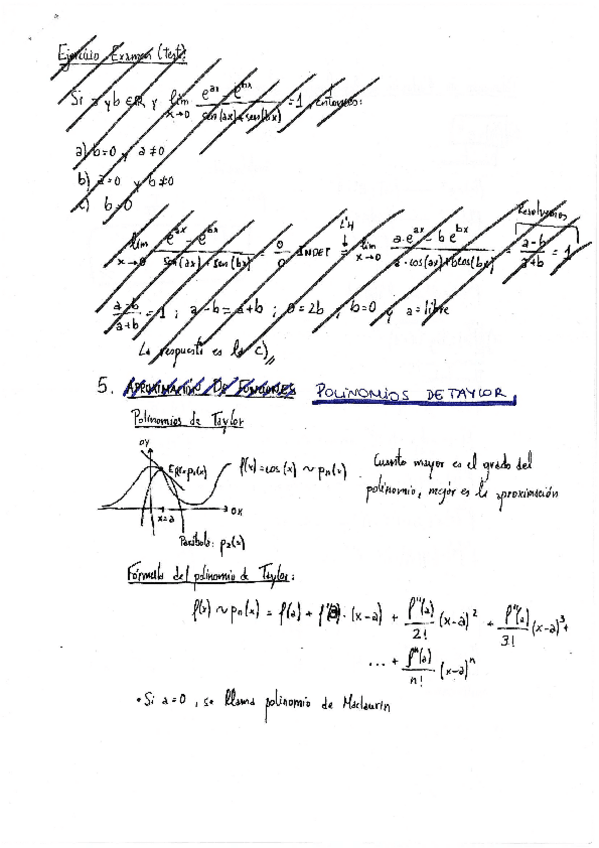 Ejercicio Examen (test):
Si a y b ∈ R y lim x→0 (e^ax - e^bx)/(sen(ax)+sen(bx)) = 1, entonces:
a) b=0 y a≠0
b) a=0 y b≠0
c) b=0
Resolvemos
lim x→0 (e^ax - e^bx)/(sen(ax)+sen(bx)) = 0/0 INDET = L'H lim x→0 (a·e^ax - b e^bx)/(a·cos(ax)+b cos(bx)) = (a-b)/(a+b) = 1
(a-b)/(a+b) = 1 ; a-b = a+b ; 0=2b ; b=0 y a=libre
La respuesta es la c)
5. APROXIMACIÓN DE FUNCIONES POLINOMIOS DE TAYLOR
Polinomios de Taylor
OY
f(x)=cos(x) ~ pn(x)
Cuanto mayor es el grado del
polinomio, mejor es la aproximación
x=a
OX
Parábola: p2(x)
Fórmula del polinomio de Taylor:
f(x) ~ pn(x) = f(a) + f'(a)·(x-a) + f''(a)/2! (x-a)^2 + f'''(a)/3! (x-a)^3 +
... + f^n(a)/n! (x-a)^n
• Si a=0, se llama polinomio de Maclaurin